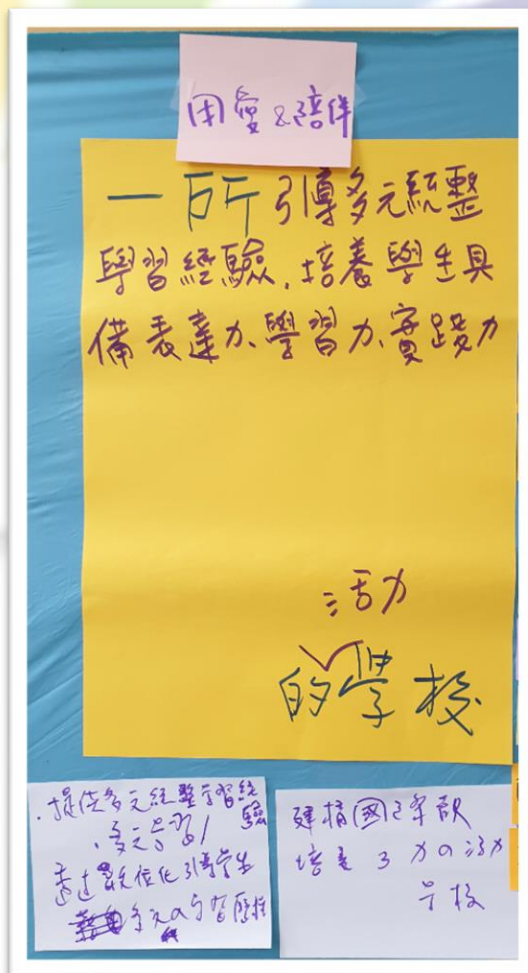 用愛&陪伴
一所引導多元統整
學習經驗,培養學生具
備表達力、學習力、實踐力
活力
的學校
.提供多元統整学習經驗
、多元学習/
透過數位化引導学生
多元の学習歷程
建構國
培養3力の活力
学校